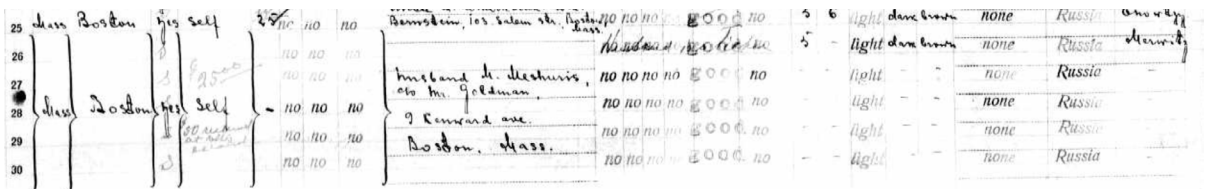 25 Mass Boston yes self 25/- no no no Bernstein, 105 Salem str. Boston Mass. no no no good no 5 6 light dark brown none Russia
26 S no no no no 5 - light dark brown none Russia
27 S no no no husband M. Meshuris, no no no no good no - - light - - none Russia -
c/o Mr. Goldman,
28 Mass Boston yes self - no no no 9 Kenward ave. no no no no good no - - light - - none Russia -
29 no no no Boston, Mass. no no no no good no - - light - - none Russia -
30 S no no no no no no no good no - - light - - none Russia -